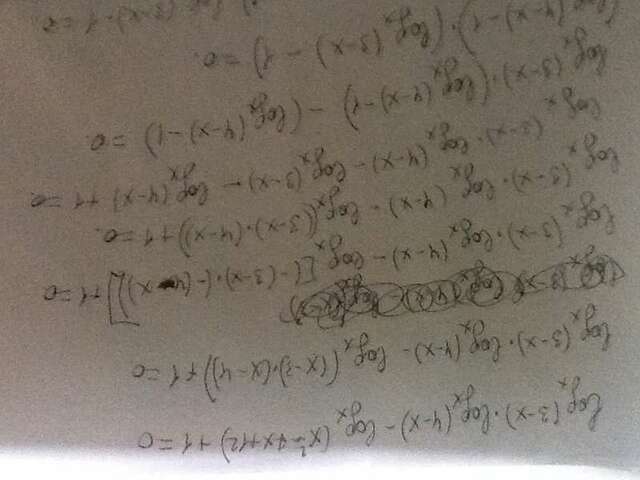 log_x (3-x)·log_x (4-x) - log_x (x²-7x+12) +1=0
log_x (3-x)·log_x (4-x) - log_x ((x-3)·(x-4)) +1=0
log_x (3-x)·log_x (4-x) - log_x [[-(3-x)·(-(4-x))]] +1=0
log_x (3-x)·log_x (4-x) - log_x ((3-x)·(4-x)) +1=0.
log_x (3-x)·log_x (4-x) - log_x (3-x) - log_x (4-x) +1=0.
log_x (3-x)·(log_x (4-x)-1) - (log_x (4-x)-1) =0
(log_x (4-x)-1)·(log_x (3-x) -1) =0.
(3-x)-1=0